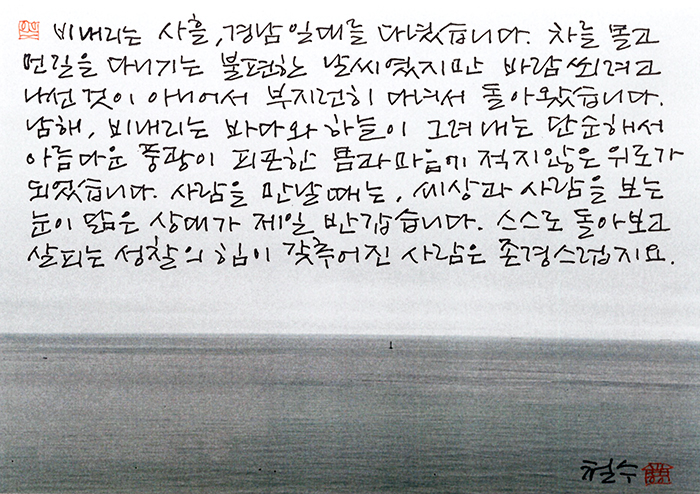 비내리는 사흘, 경남일대를 다녔습니다. 차를 몰고
먼길을 다니기는 불편한 날씨였지만 바람쐬려고
나선것이 아니어서 부지런히 다녀서 돌아왔습니다.
남해, 비내리는 바다와 하늘이 그려내는 단순해서
아름다운 풍광이 피곤한 몸과마음에 적지않은 위로가
되었습니다. 사람을 만날때는, 세상과 사람을 보는
눈이 닮은 상대가 제일 반갑습니다. 스스로 돌아보고
살피는 성찰의 힘이 갖추어진 사람은 존경스럽지요.
철수